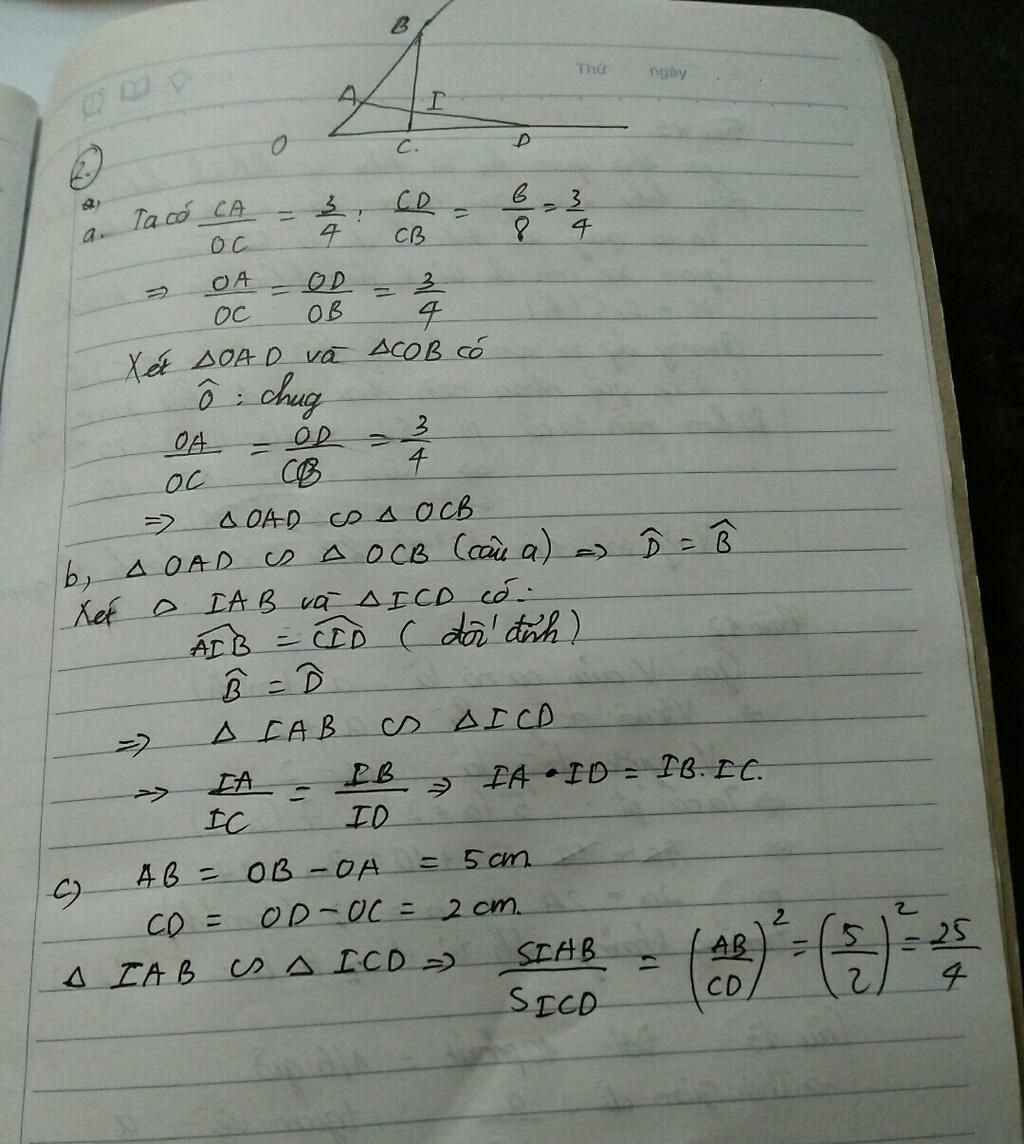 B
Thứ ngày
A I
O C. D
2.
a,
a. Ta có CA/OC = 3/4 ; CD/CB = 6/8 = 3/4
=> OA/OC = OD/OB = 3/4
Xét △OAD và △COB có
Ô : chug
OA/OC = OD/OB = 3/4
=> △OAD ∽ △OCB
b, △OAD ∽ △OCB (câu a) => D̂ = B̂
Xét △IAB và △ICD có:
AIB̂ = CID̂ (đối đỉnh)
B̂ = D̂
=> △IAB ∽ △ICD
=> IA/IC = IB/ID => IA . ID = IB. IC.
c) AB = OB - OA = 5cm
CD = OD - OC = 2cm.
△IAB ∽ △ICD => SIAB/SICD = (AB/CD)² = (5/2)² = 25/4